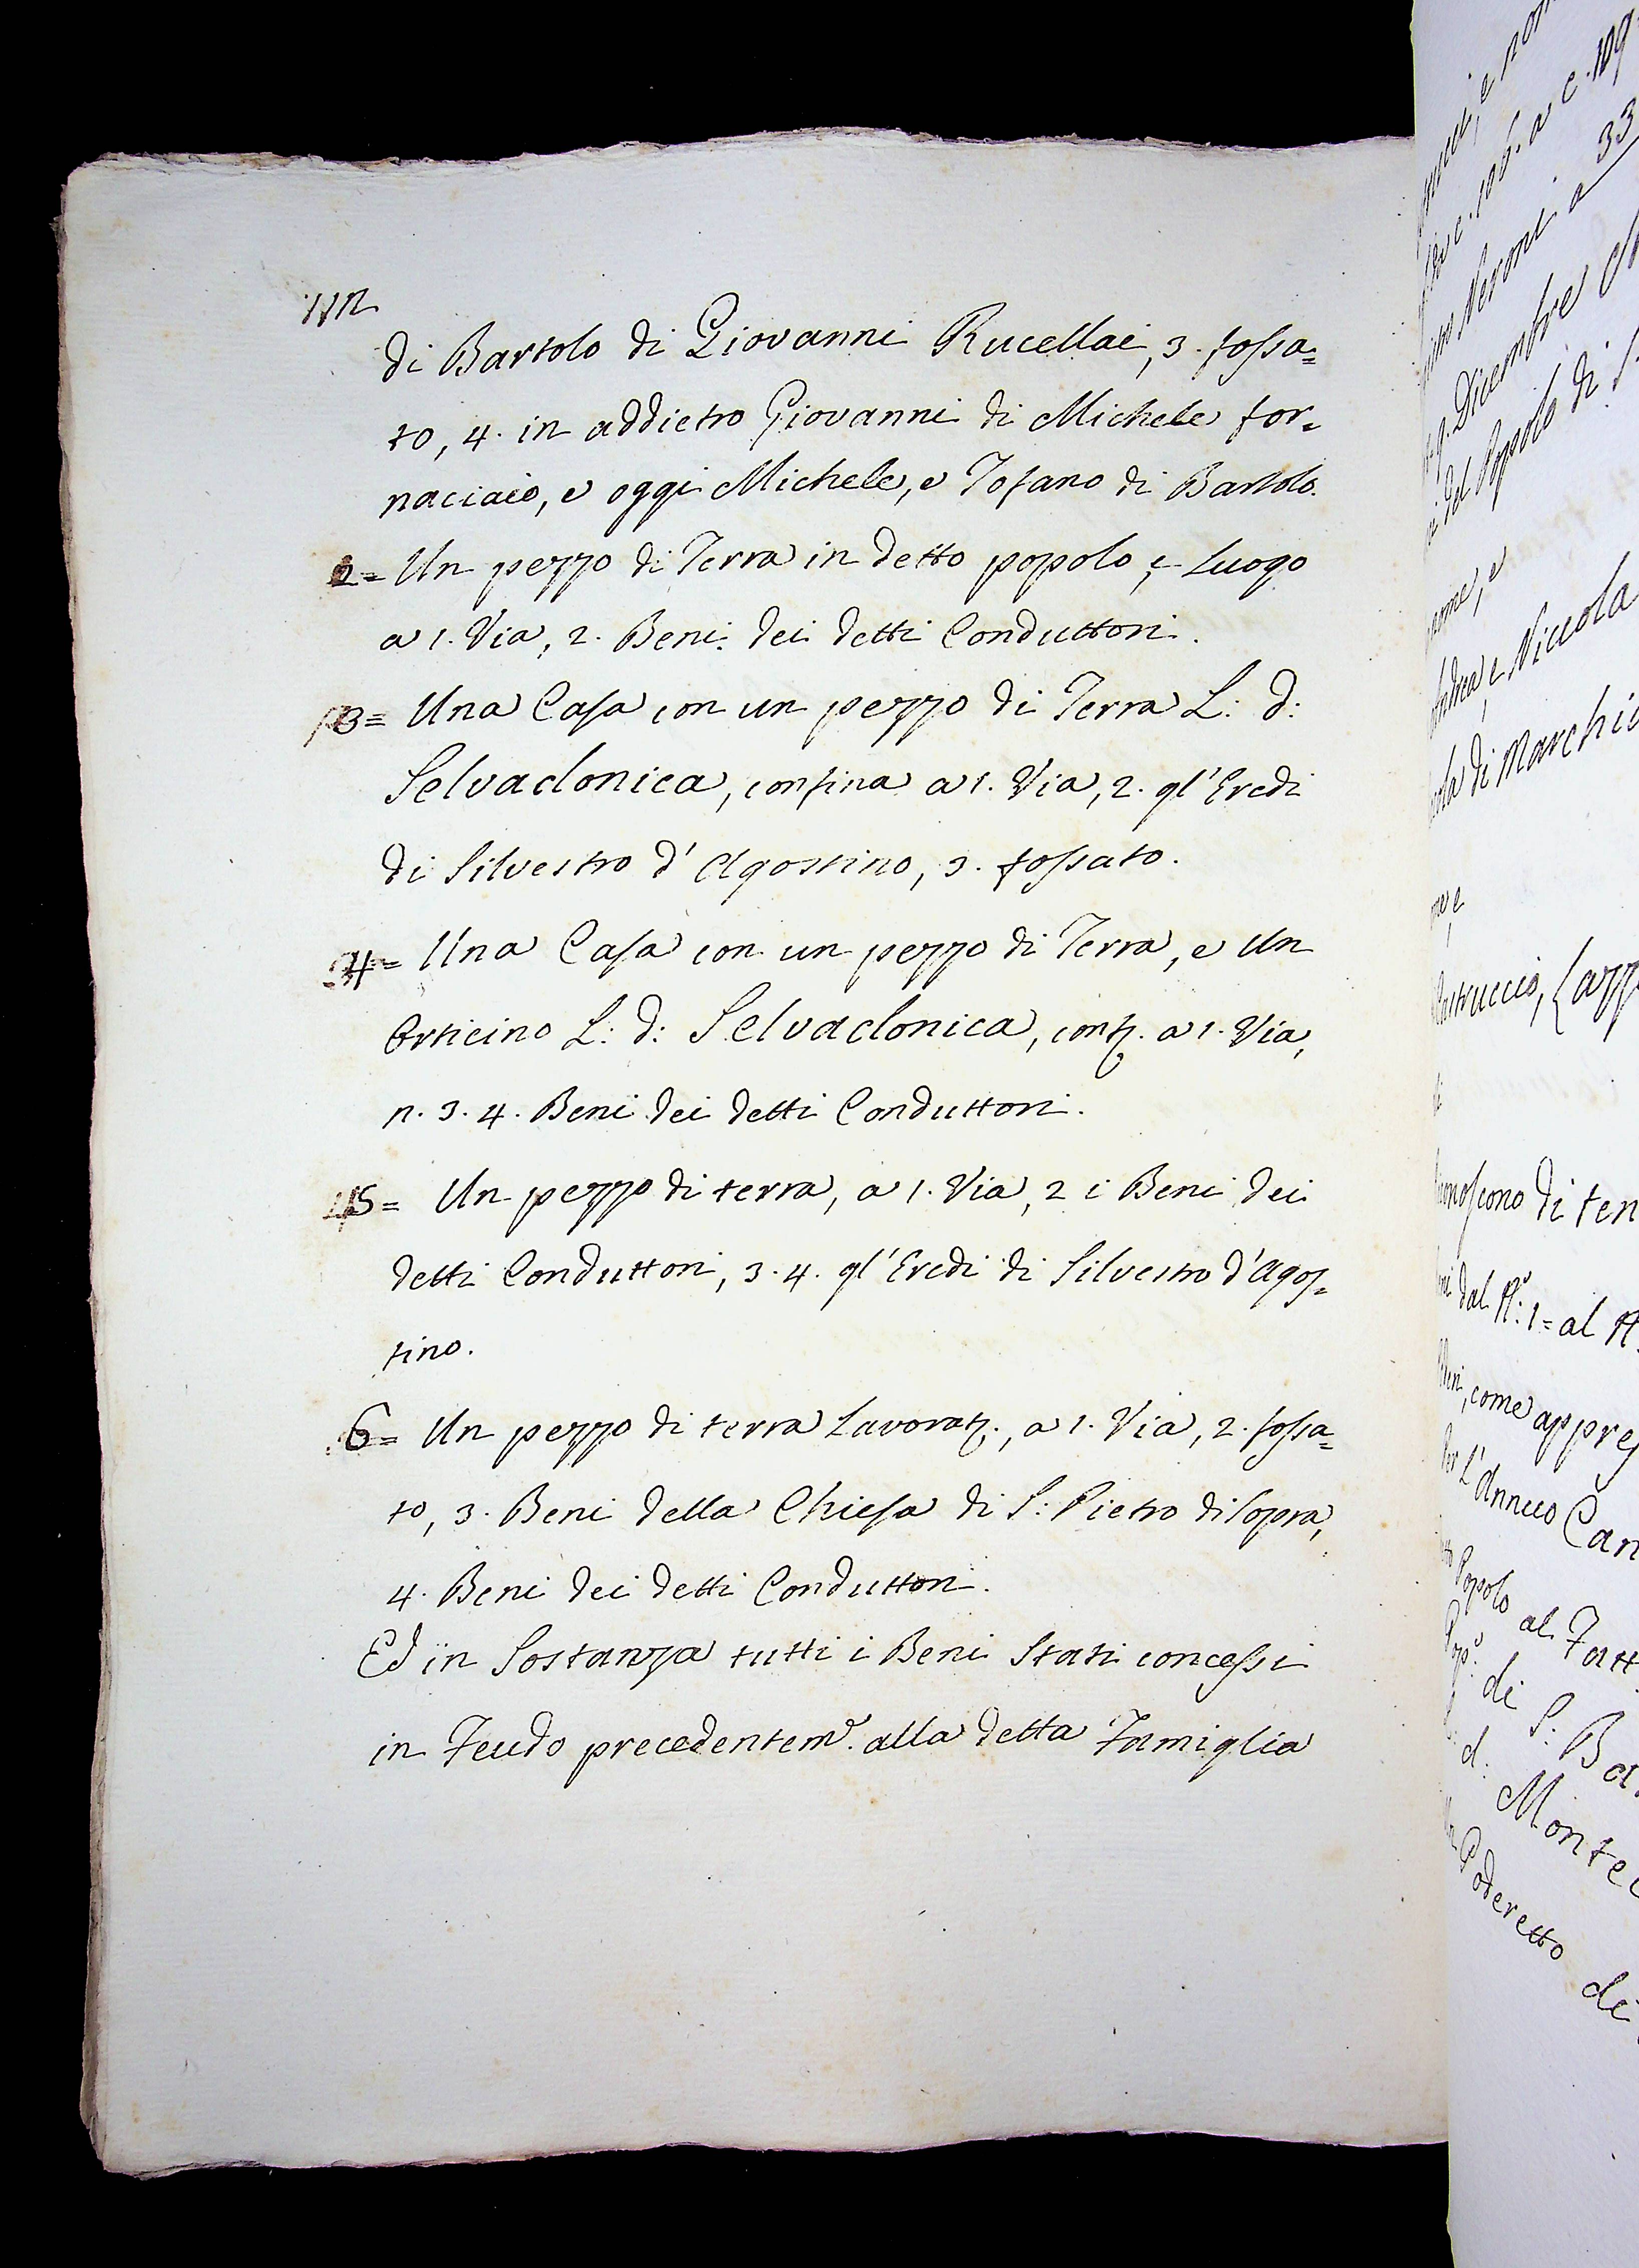 112
di Bartolo di Giovanni Rucellai, 3. fossa=
to, 4. in addietro Giovanni di Michele for=
naciaio, e oggi Michele, e Tofano di Bartolo.
2= Un pezzo di Terra in detto popolo, e Luogo
a 1. Via, 2. Beni dei detti Conduttori.
3= Una Casa con un pezzo di Terra L: d:
Selvaclonica, confina a 1. Via, 2. gl'Eredi
di Silvestro d'Agostino, 3. fossato.
4= Una Casa con un pezzo di Terra, e Un
Orticino L: d: Selvaclonica, conf. a 1. Via,
2. 3. 4. Beni dei detti Conduttori.
5= Un pezzo di terra, a 1. Via, 2 i Beni dei
detti Conduttori, 3. 4. gl'Eredi di Silvestro d'Agos=
tino.
6= Un pezzo di terra Lavorat., a 1. Via, 2. fossa=
to, 3. Beni della Chiesa di S: Pietro di Sopra,
4. Beni dei detti Conduttori.
Ed in Sostanza tutti i Beni Stati concessi
in Feudo precedentem.e alla detta Famiglia
c. 109
Neroni a 33
Dicembre
del Popolo di S.
e Niccola
di Marchi
Castruccio,
di ten
dal N.o 1= al N.
come appres
L'Annuo Can
Popolo al Fatt
di S: Bar
d: Monte
Poderetto di